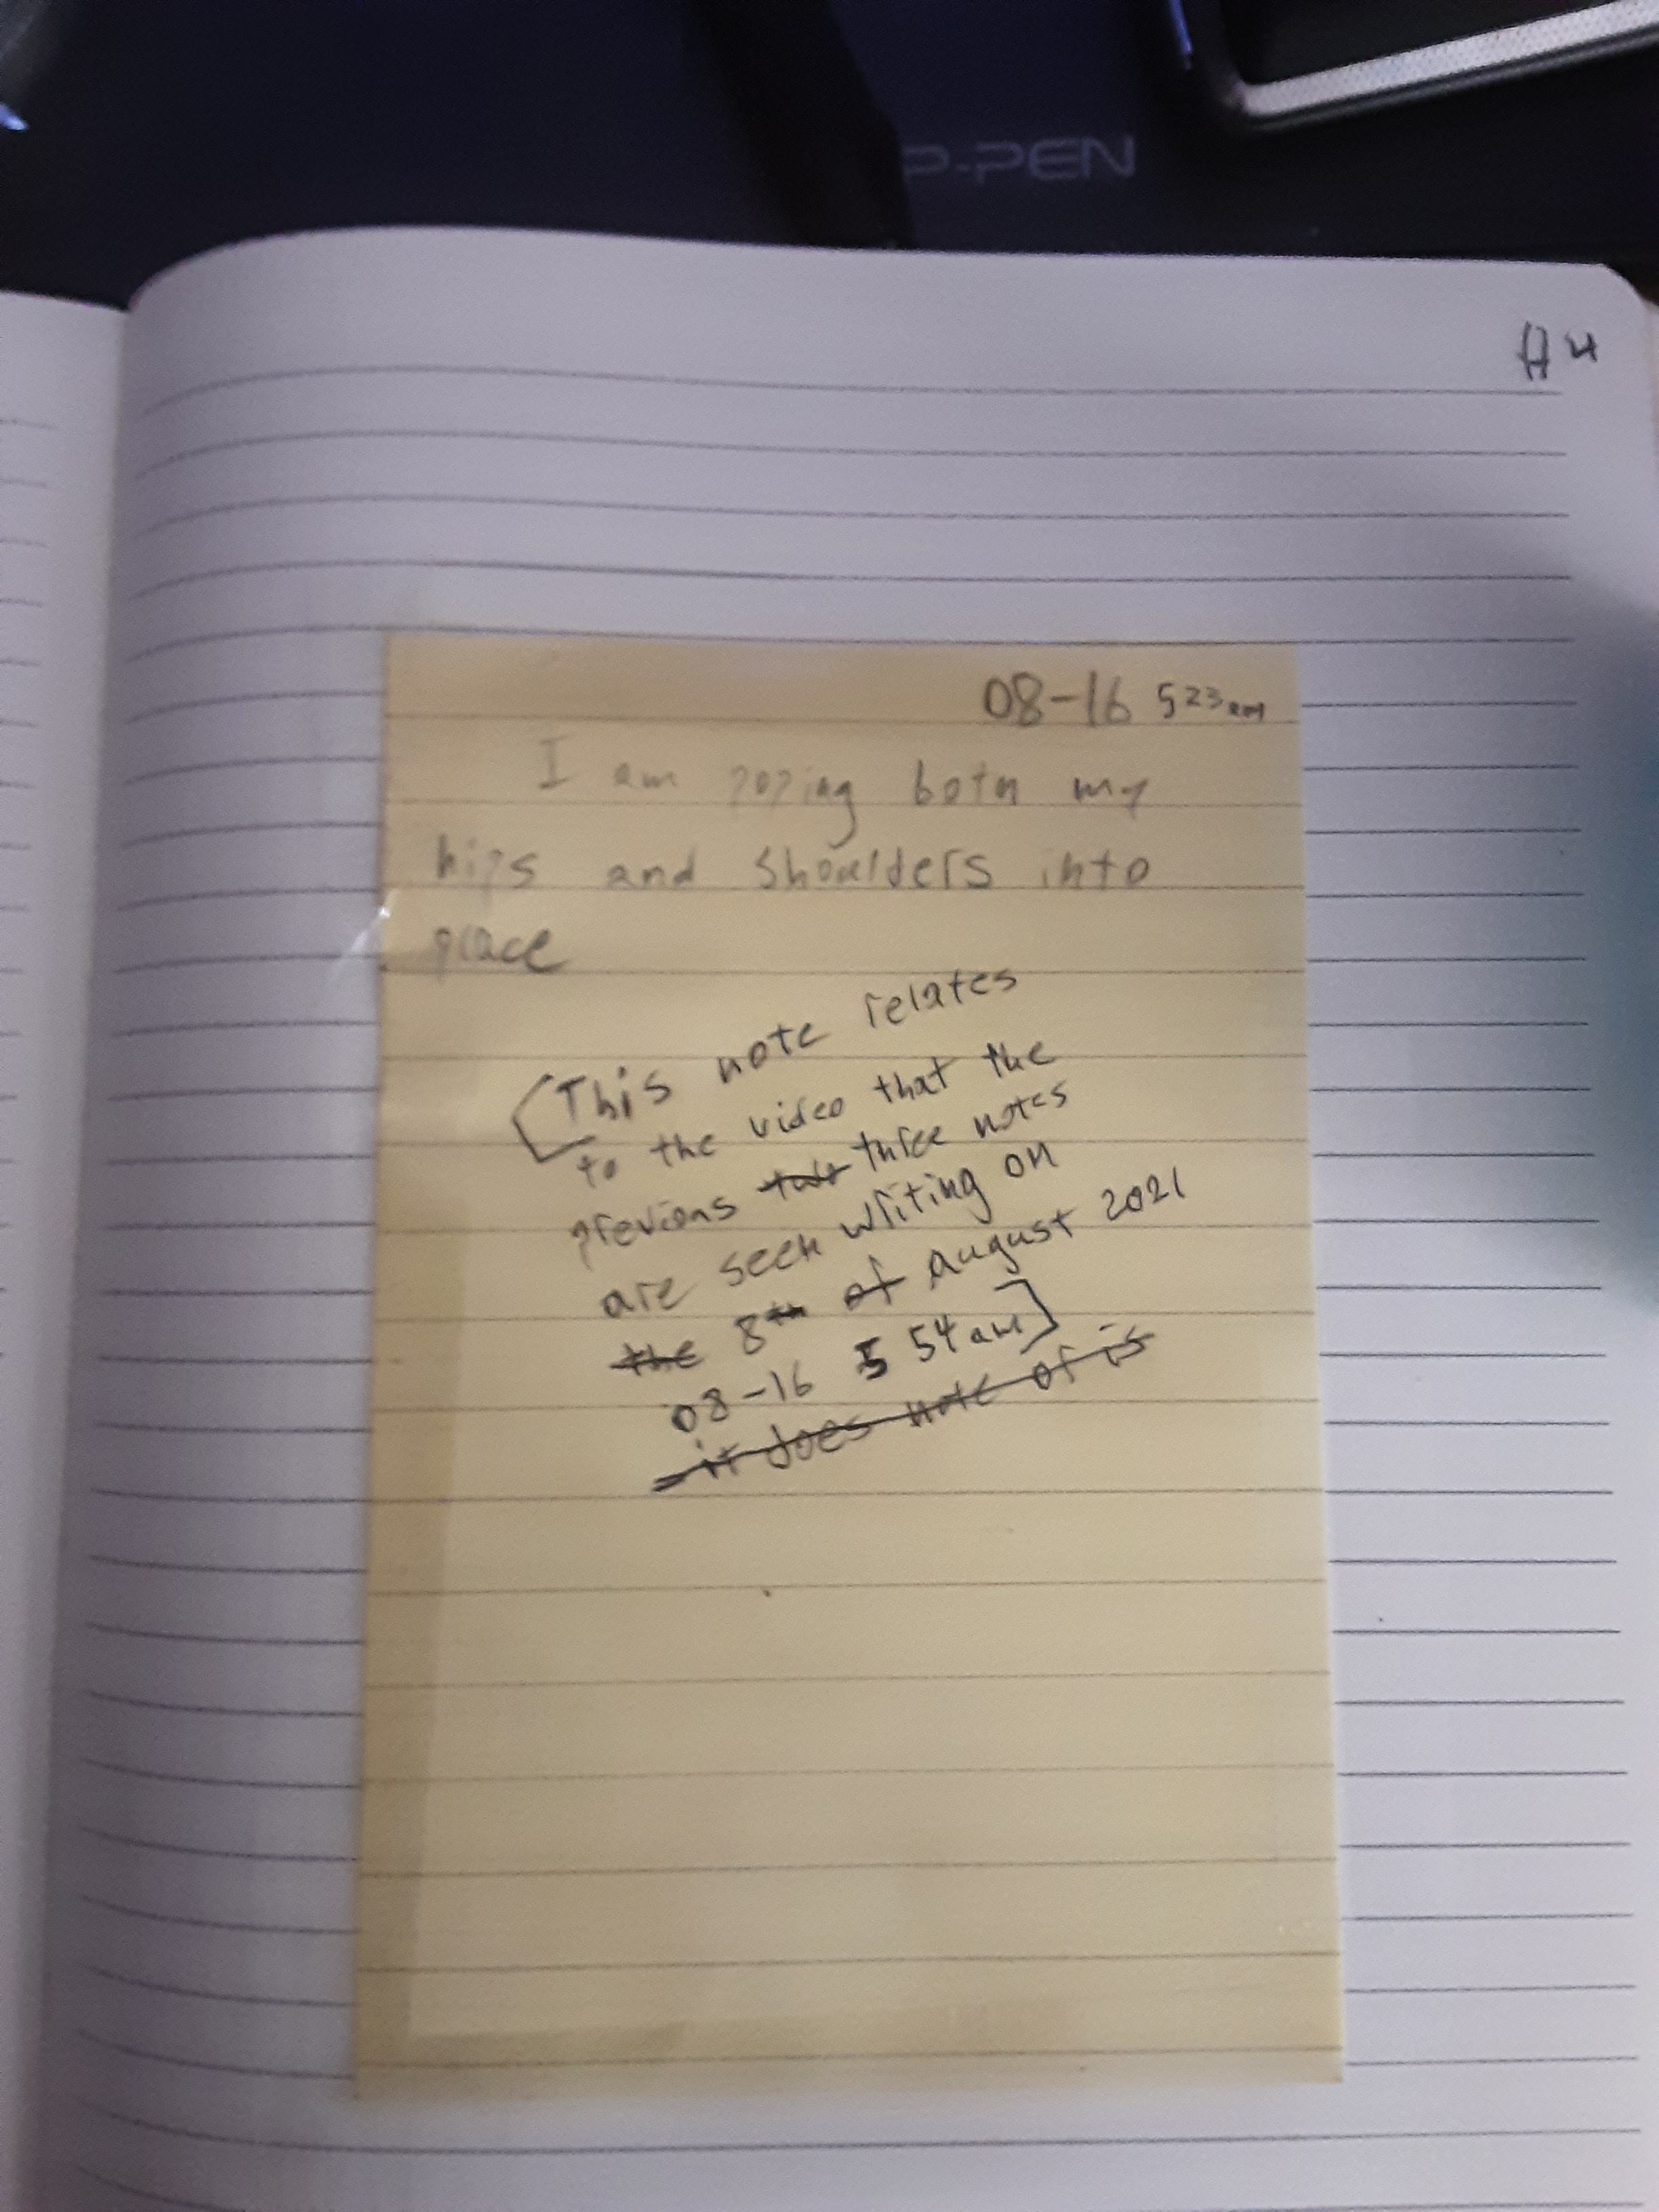 P-PEN
A4
08-16 523am
I am poping both my
hips and shoulders into
place
[This note relates
to the video that the
previous three notes
are seen writing on
the 8th of august 2021
08-16 5 54am]
- it does note of is